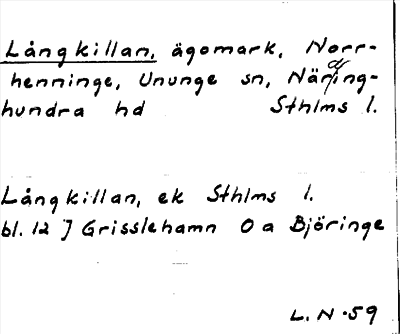 Långkillan, ägomark, Norr-
henninge, Ununge sn, Närding-
hundra hd Sthlms l.
Långkillan, ek Sthlms l.
bl. 12 J Grisslehamn O a Björinge
L. N. 59